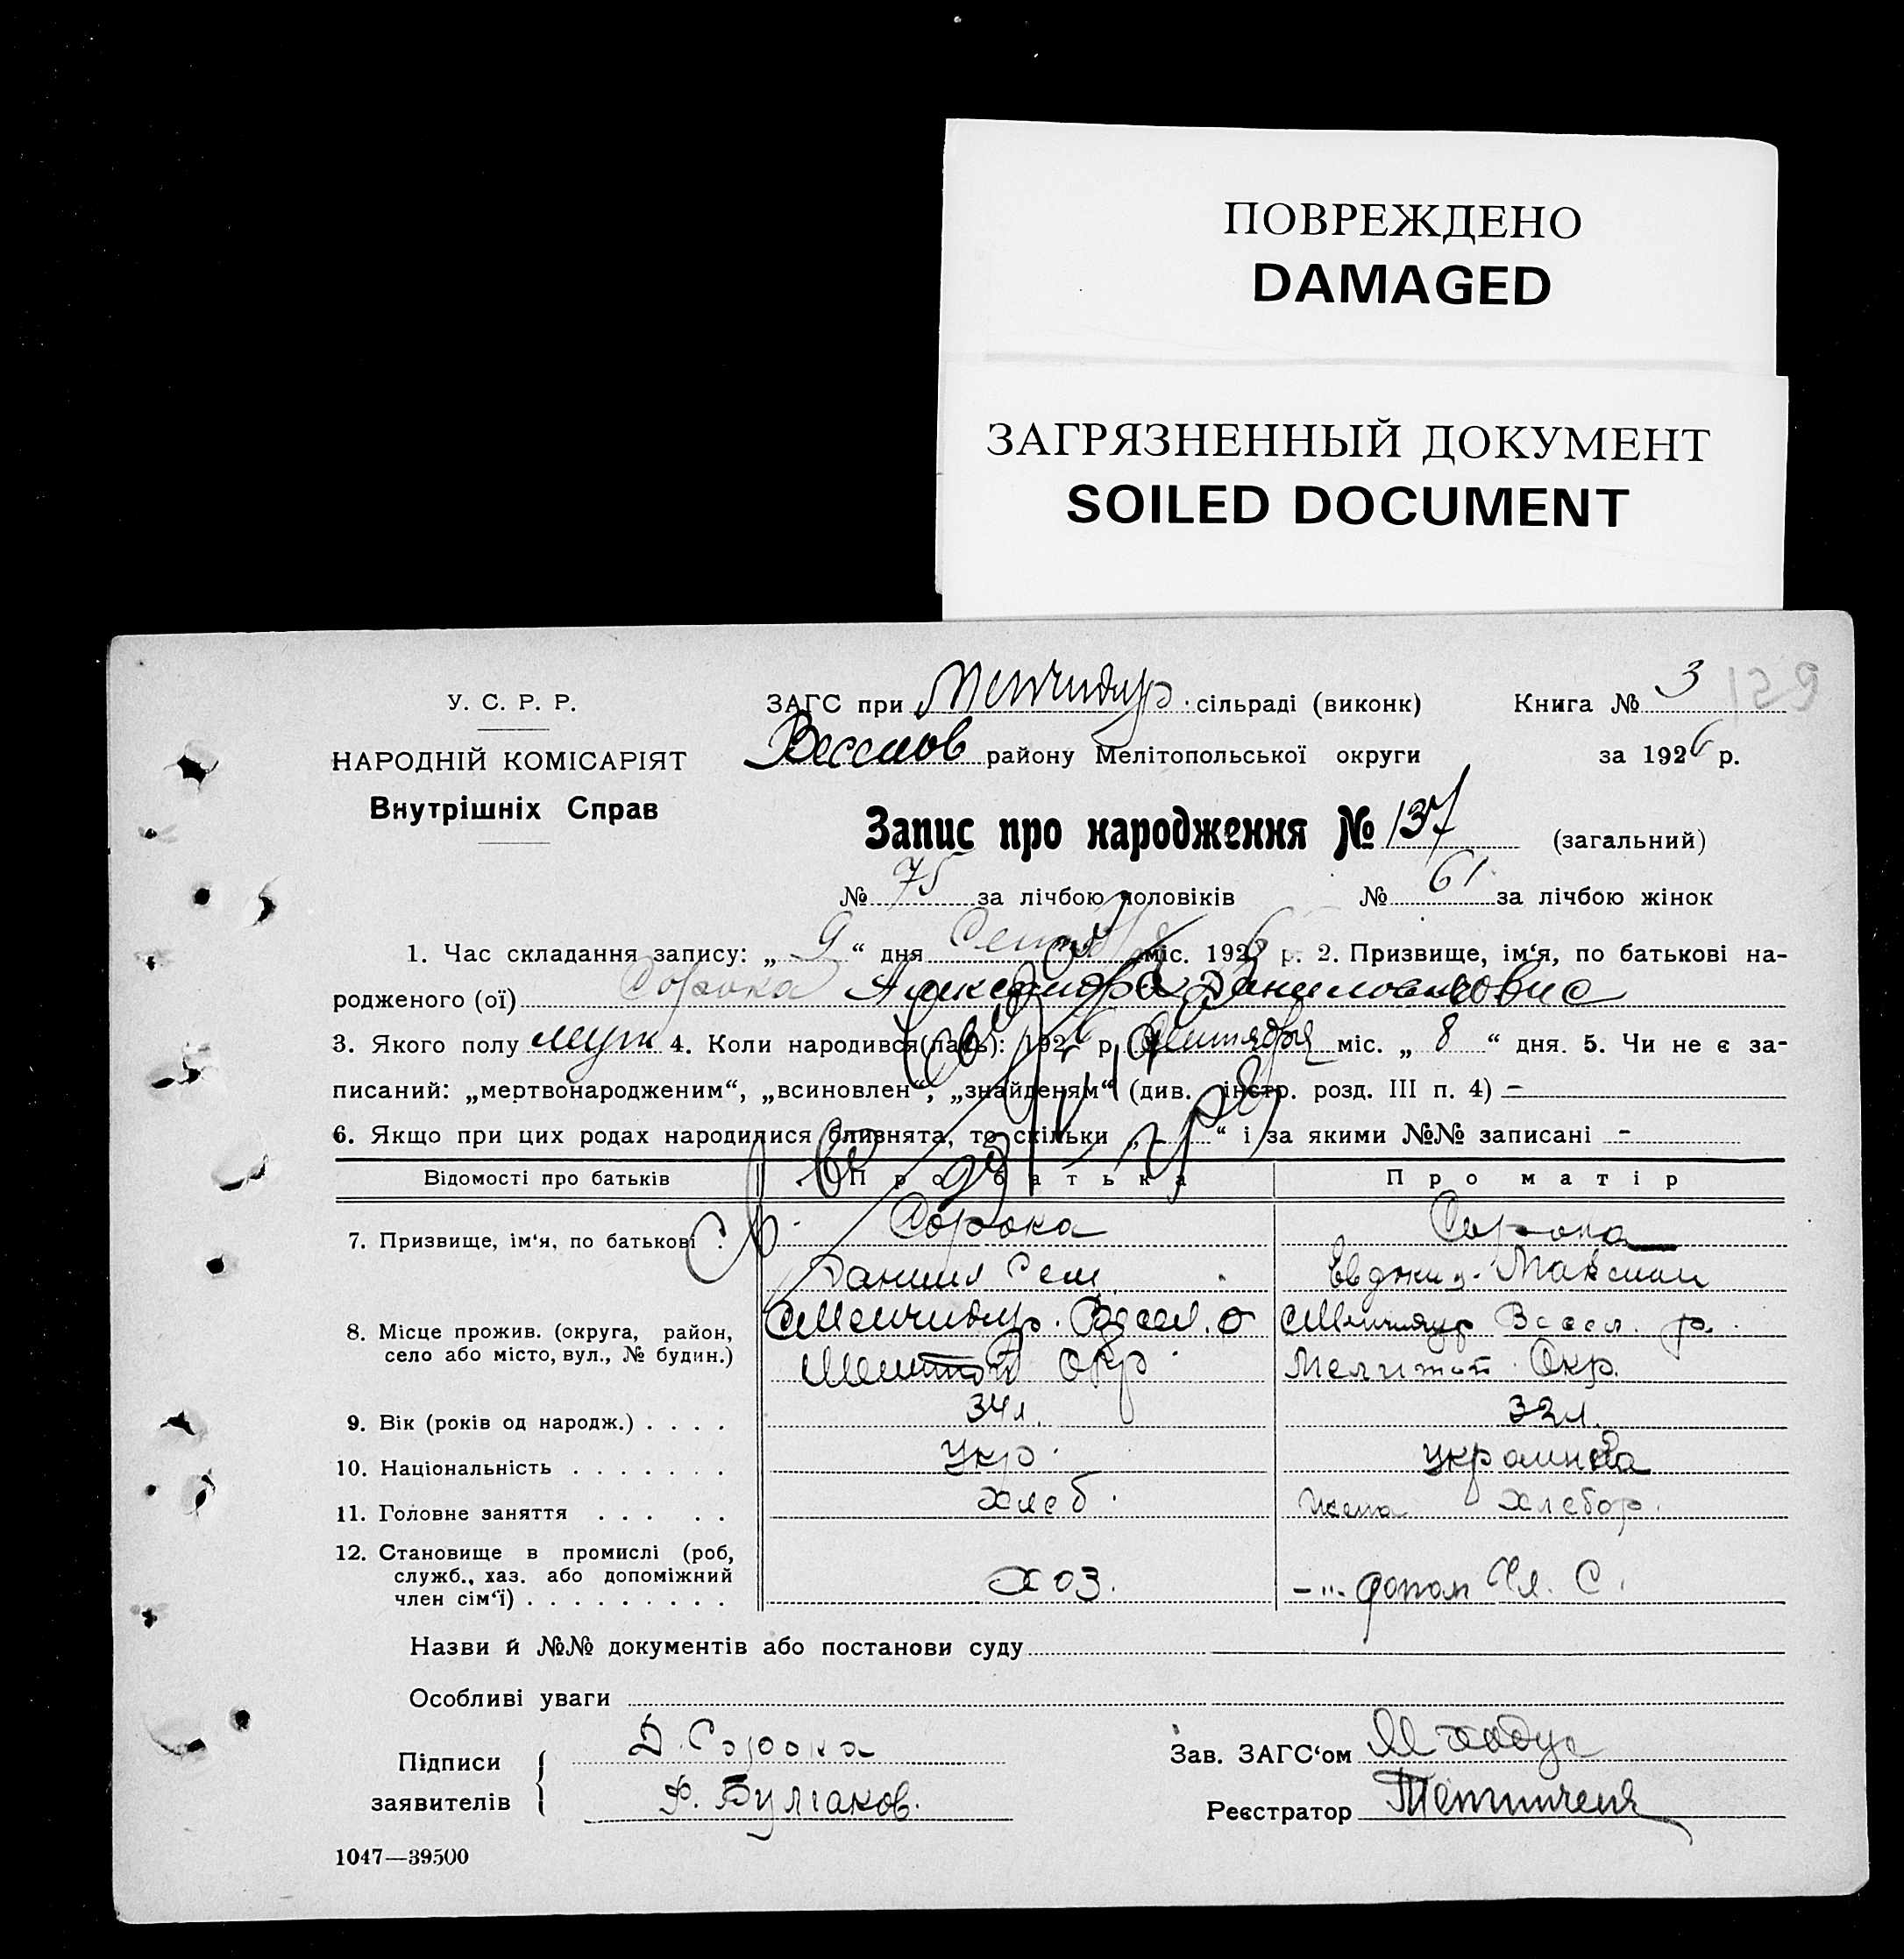 ПОВРЕЖДЕНО
DAMAGED
ЗАГРЯЗНЕННЫЙ ДОКУМЕНТ
SOILED DOCUMENT
У. С. Р. Р.
НАРОДНІЙ КОМІСАРІЯТ
Внутрішніх Справ
ЗАГС при Менчикур. сільраді (виконк) Книга № 3
Веселов району Мелітопольської округи за 1926 р.
Запис про народження № 137 (загальний)
№ 75 за лічбою чоловіків № 61 за лічбою жінок
1. Час складання запису: „ 9 “ дня міс. 1926 р. 2. Призвище, ім‘я, по батькові на-
родженого (ої) Сорока Александра
3. Якого полу муж 4. Коли народився(лась): 1926 р Сентября міс. „ 8 “ дня. 5. Чи не є за-
писаний: „мертвонародженим“, „всиновлен“, „знайденям“ (див. інстр. розд. III п. 4) –
6. Якщо при цих родах народилися близнята, то скільки „ - “ і за якими №№ записані -
Відомості про батьків Про батька Про матір
7. Призвище, ім‘я, по батькові . Сорока Сорока
Даниил Сем Евдоки Максим
8. Місце прожив. (округа, район, село або місто, вул., № будин.) Менчикур. Весел. Менчикур Весел. р.
Мелитоп Окр. Мелитоп. Окр.
9. Вік (років од народж.) . . . . 34 л. 32 л.
10. Національність . . . . . . . Укр. украинка
11. Головне заняття . . . . . хлеб. жена хлебор.
12. Становище в промислі (роб, служб., хаз. або допоміжний член сім‘ї) . . . . . . . . . хоз. -"- допом Чл. С.
Назви й №№ документів або постанови суду
Особливі уваги
Підписи заявителів Д. Сорока
Ф. Булгаков.
Зав. ЗАГС‘ом
Реєстратор
1047—39500